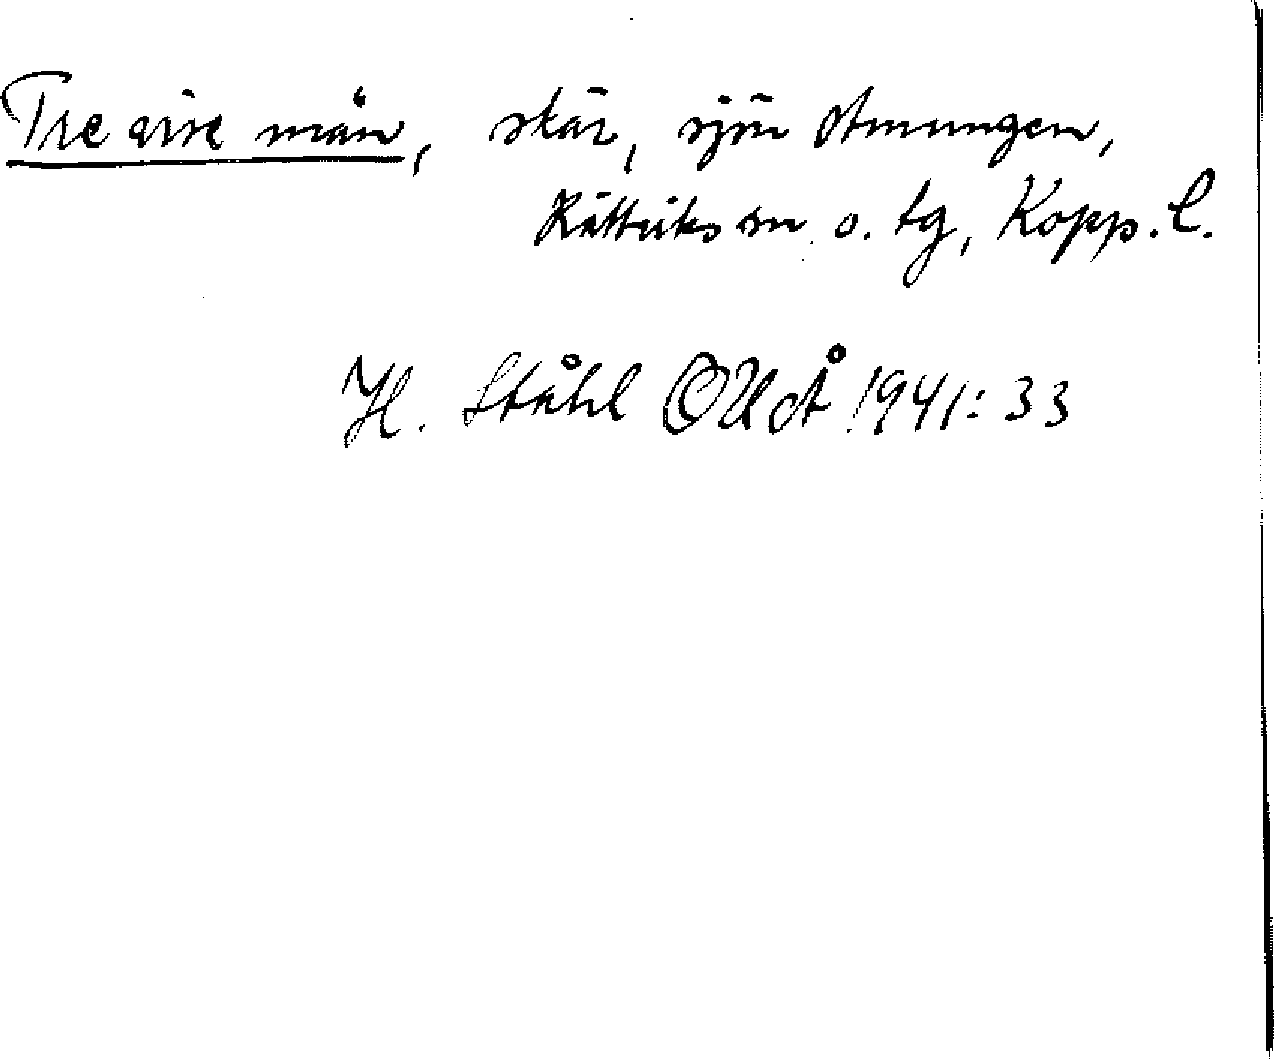 Tre vise män, skär, sjön Amungen,
Rättviks sn o. tg, Kopp. l.
H. Ståhl OUÅ 1941: 33